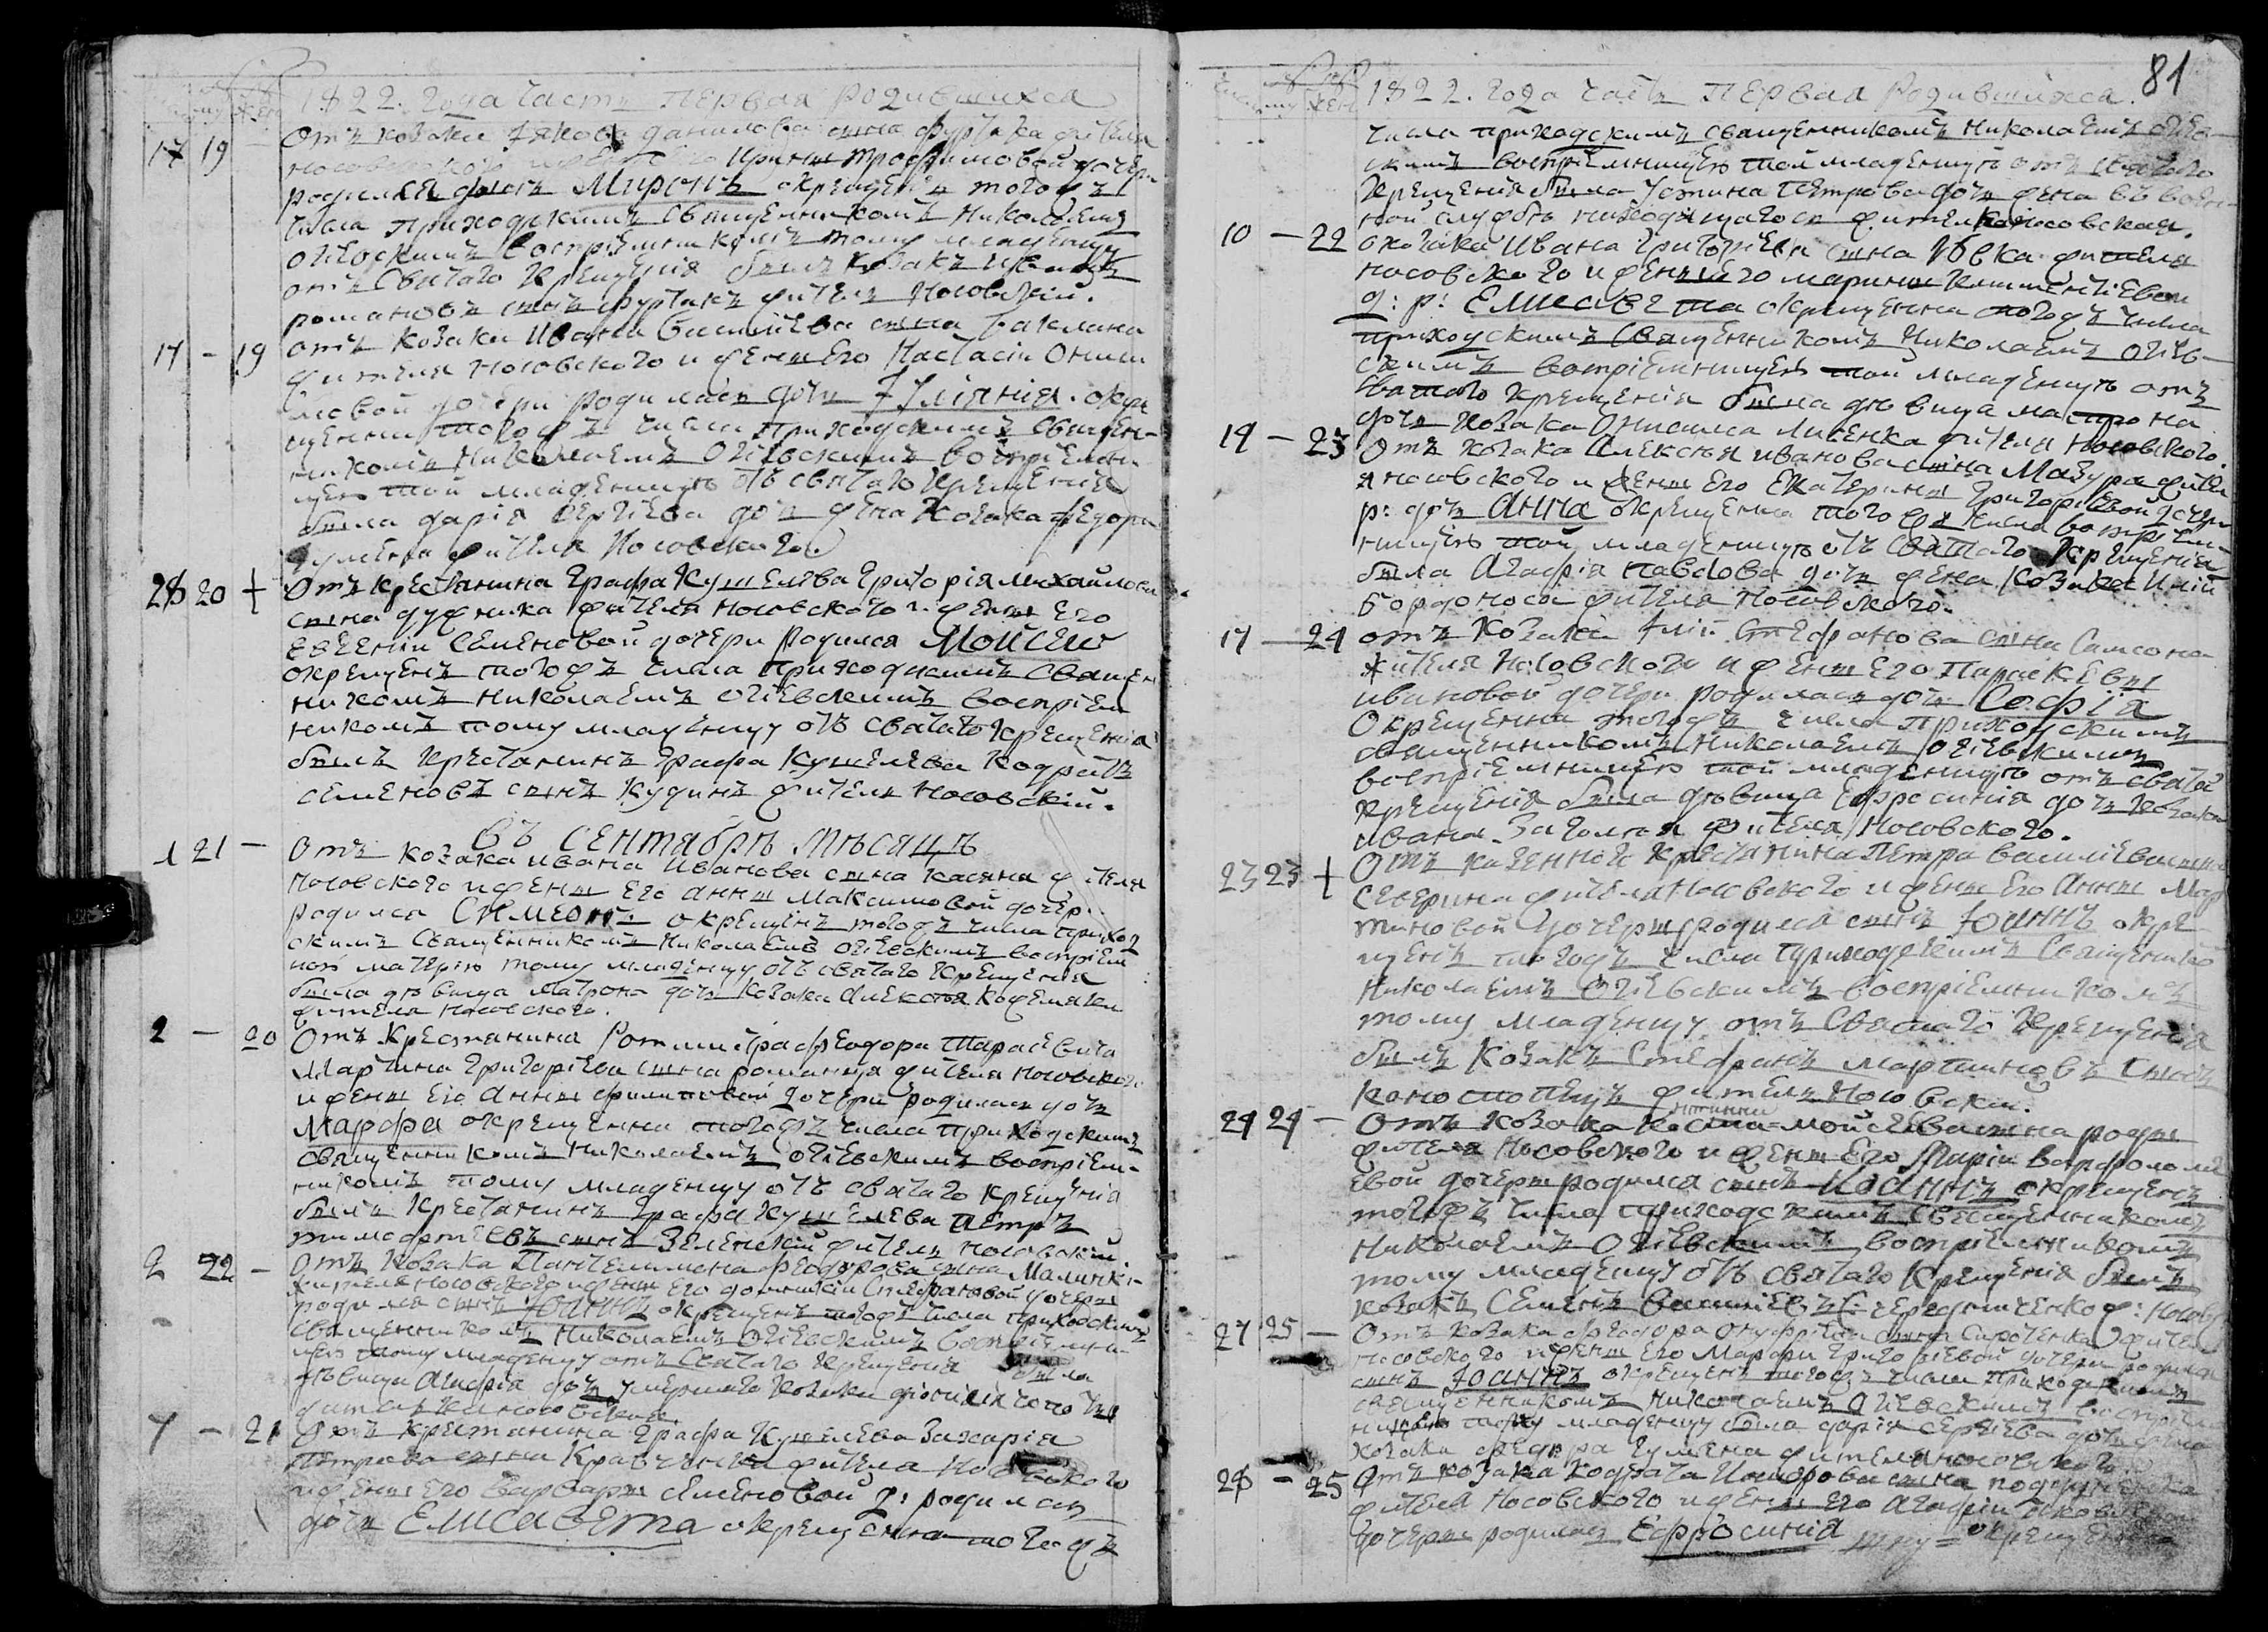 1822. года часть Первая родившихся
17 19 отъ козака Якова данилова сына фуртака жителя
носовского Ирины трофимовой дочери
родился сынъ Миронъ окрещенъ тогожъ
числа приходскимъ священникомъ Николаемъ
огіевскимъ воспріемникомъ тому младенцу
отъ святаго крещенія былъ козакъ
романовъ сынъ фуртакъ житель Носовскій.
17 - 19 отъ козака Ивана василіева сына баклана
жителя носовского и жены его Настасіи Ониси
мовой дочери родилась дочь Іуліанія. окре
щенна тогожъ числа приходскимъ священ-
никомъ Николаемъ Огіевскимъ воспріемни
цею той младеницъ отъ святаго крещенія
была дарія сергіева дочь жена козака федора
гумена жителя Носовского.
28 20 + Отъ крестянина графа Кушелева григорія михайлова
сына дужника жителя носовского и жены его
евгеніи Семеновой дочери родился Мойсей
окрещенъ тогожъ числа приходскимъ священ
никомъ николаемъ огіевскимъ воспріем
никомъ тому младенцу отъ святаго крещенія
былъ крестянинъ графа кушелева Кодратъ
семеновъ сынъ кудинъ житель носовскій.
въ сентябрѣ мѣсяцѣ
1 21 - Отъ козака ивана Иванова сына касяна жителя
Носовского и жены его анны Максимовой дочери
родился Симеонъ окрещенъ тогожъ числа приход
скимъ священникомъ Николаемъ огіевскимъ воспріем
ною матерію тому младенцу отъ святаго крещенія
была дѣвица матрона дочь козака Алексѣя Кожемяки
жителя носовского.
2 - 20 Отъ крестянина Ротмистра феодора Тарасевича
Мартина григоріева сына романця жителя носовского
и жены его анны филиповой дочери родилась дочь
Марфа окрещенна тогожъ числа приходскимъ
священникомъ Николаемъ огіевскимъ воспріем-
никомъ тому младенцу отъ святаго крещенія
былъ крестянинъ графа кушелева петръ
тимофѣевъ сынъ Зеленскій житель носовскій
2 22 - отъ козака Пантелимона феодорова сына
жителя носовского и жены его домникіи Стефановой дочери
родился сынъ Іоаннъ окрещенъ тогожъ числа приходскимъ
священникомъ Николаемъ Огіевскимъ воспріемни-
цею тому младенцу отъ святаго крещенія была
дѣвица Агафія дочь умершаго козака
жителька носовская.
7 - 21 Отъ крестянина графа Кушелева Захарія
петрова сына кравченка жителя носовского
и жены его варвары семеновой д: родилась
дочь Елисавета окрещенна тогожъ
81
1822. года часть Первая родившихся.
числа приходскимъ священникомъ николаемъ огіев-
скимъ воспріемницею той младеницъ отъ святаго
крещенія была устина петрова дочь жена въ воен-
ной службѣ находящагося жителька носовская.
10 - 22 от козака ивана григоріева сына Човка жителя
носовского и жены его марины климентіевой
д: р: Елисавета окрещенна тогожъ числа
приходскимъ священникомъ Николаемъ огіев-
скимъ воспріемницею той младеницъ отъ
святаго крещенія была дѣвица матрона
дочь козака Онисима лисенка жителя носовского.
19 - 23 Отъ козака Алексѣя иванова сына Мазура жител
я носовского и жены его екатерины григоріевой дочери
р: дочь Анна окрещенна тогожъ числа воспріем-
ницею той младеницъ отъ святаго крещенія
была Агафія павлова дочь жена козака Иліи
бородоноса жителя носовского.
17 - 24 отъ козака Іліи Стефанова сына Самсона
жителя Носовского и жены его параскевы
ивановой дочери родилась дочь Софія
Окрещенна тогожъ числа приходскимъ
священникомъ Николаемъ огіевскимъ
воспріемницею той младеницъ отъ святаго
крещенія была дѣвица Ефросинія дочь козака
ивана жителя Носовского.
23 23 + Отъ казенного крестянина петра василіева сына
северина жителя носовского и жены его Анны мар
тиновой дочеры родился сынъ Іоаннъ окре
щенъ тогожъ числа приходскимъ священико
Николаемъ Огіевскимъ воспріемникомъ
тому младенцу отъ святаго крещенія
былъ козакъ Стефанъ мартиновъ сынъ
конотопецъ житель носовскій.
24 24 - Отъ козака мойсеева сына
жителя Носовского и жены его Маріи варфоломе
евой дочеры родился сынъ Іоаннъ окрещенъ
тогожъ числа приходскимъ священникомъ
николаемъ Огіевскимъ воспріемникомъ
тому младенцу отъ святаго крещенія былъ
козакъ Семенъ василіевъ с: ж: носов
27 25 - Отъ козака феодора онуфріева сына Сиротенка жителя
носовского и жены его Марфы григоріевой дочери родился
сынъ Іоаннъ окрещенъ тогожъ числа приходскимъ
священникомъ николаемъ Огіевскимъ воспріем
ницею тому младенцу была дарія сергіева дочь жена
козака федора гумена жителя носовского
28 - 25 Отъ козака кодрата сына
жителя Носовского и жены его агафіи
дочеры родилась Ефросинія окрещенна